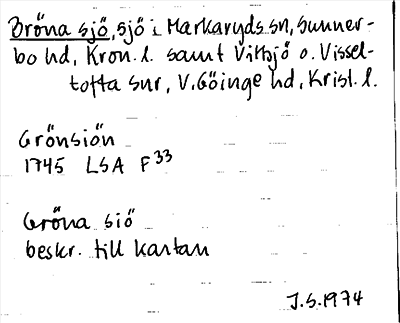 Gröna sjö, sjö i Markaryds sn, Sunner-
bo hd, Kron. l. samt Vittsjö o. Vissel-
tofta snr, V. Göinge hd, Krist. l.
Grönsiön
1745 LSA F33
Gröna siö
beskr. till kartan
J.S. 1974